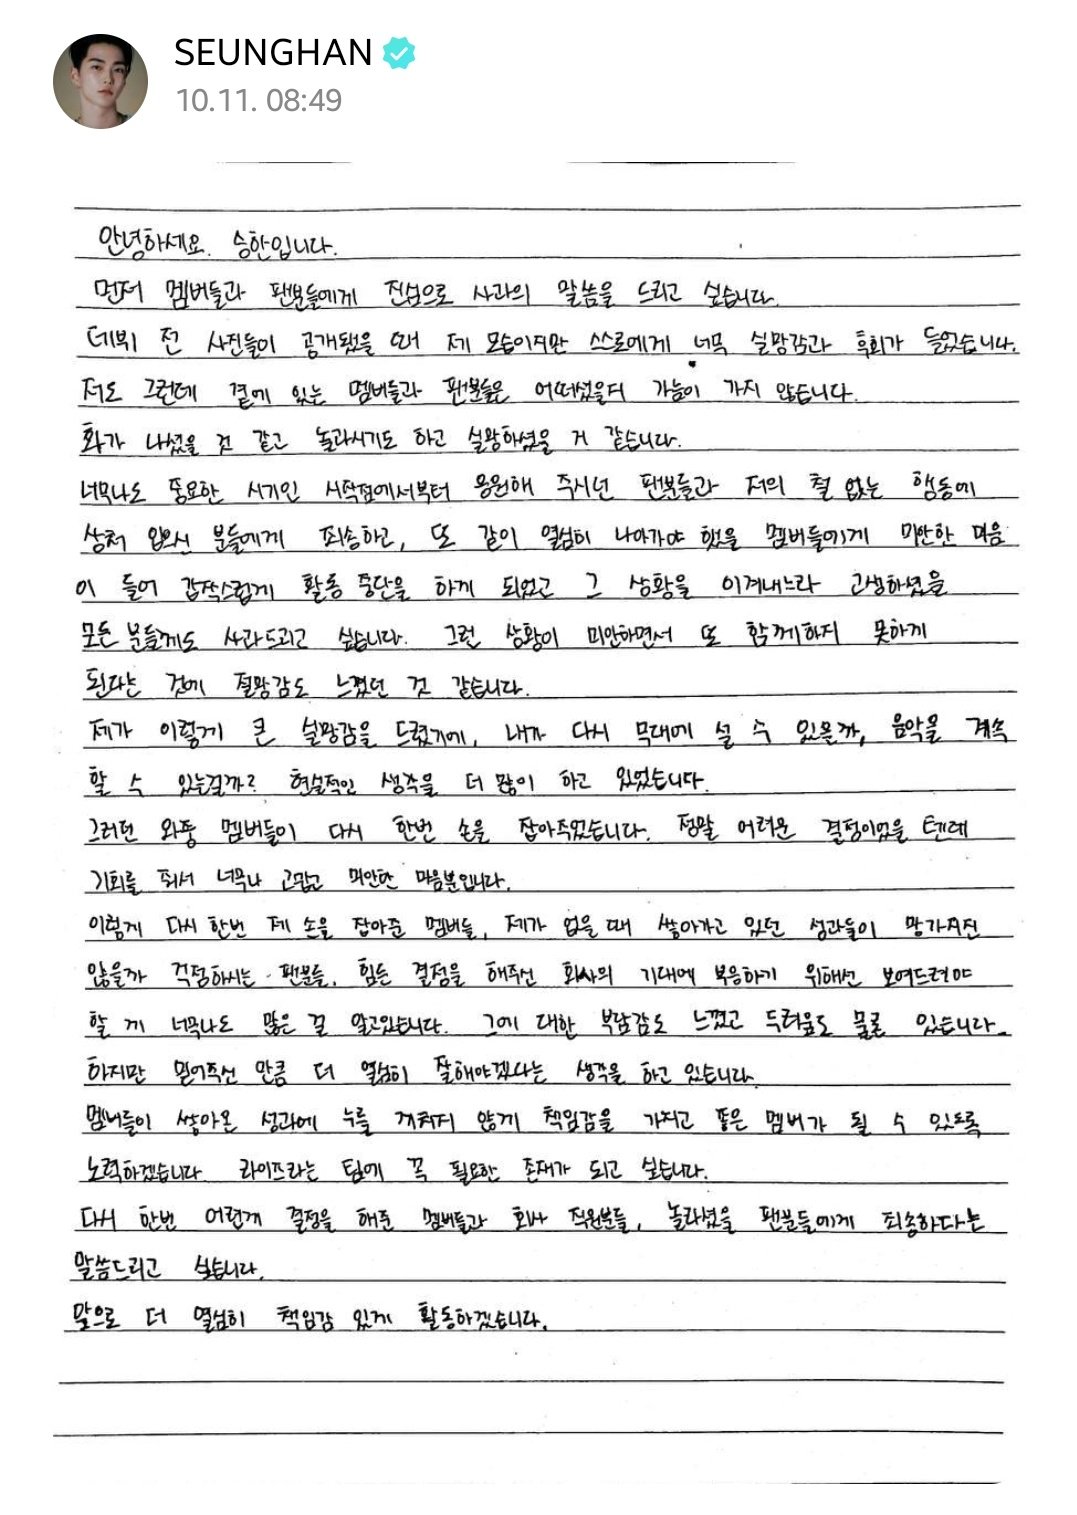 SEUNGHAN
10.11. 08:49
안녕하세요. 승한입니다.
먼저 멤버들과 팬분들에게 진심으로 사과의 말씀을 드리고 싶습니다.
데뷔 전 사진들이 공개됐을 때 제 모습이지만 스스로에게 너무 실망감과 후회가 들었습니다.
저도 그런데 곁에 있는 멤버들과 팬분들은 어떠셨을지 가늠이 가지 않습니다.
화가 나셨을 것 같고 놀라시기도 하고 실망하셨을 거 같습니다.
너무나도 중요한 시기인 시작점에서부터 응원해 주시던 팬분들과 저의 철 없는 행동에
상처 입으신 분들에게 죄송하고, 또 같이 열심히 나아가야 했을 멤버들에게 미안한 마음
이 들어 갑작스럽게 활동 중단을 하게 되었고 그 상황을 이겨내느라 고생하셨을
모든 분들께도 사과드리고 싶습니다. 그런 상황이 미안하면서 또 함께하지 못하게
된다는 것에 절망감도 느꼈던 것 같습니다.
제가 이렇게 큰 실망감을 드렸기에, 내가 다시 무대에 설 수 있을까, 음악을 계속
할 수 있는걸까? 현실적인 생각을 더 많이 하고 있었습니다.
그러던 와중 멤버들이 다시 한번 손을 잡아주었습니다. 정말 어려운 결정이었을 텐데
기회를 줘서 너무나 고맙고 미안한 마음뿐입니다.
이렇게 다시 한번 제 손을 잡아준 멤버들, 제가 없을 때 쌓아가고 있던 성과들이 망가지진
않을까 걱정하시는 팬분들, 힘든 결정을 해주신 회사의 기대에 부응하기 위해선 보여드려야
할 게 너무나도 많은 걸 알고있습니다. 그에 대한 부담감도 느꼈고 두려움도 물론 있습니다.
하지만 믿어주신 만큼 더 열심히 잘해야겠다는 생각을 하고 있습니다.
멤버들이 쌓아온 성과에 누를 끼치지 않게 책임감을 가지고 좋은 멤버가 될 수 있도록
노력하겠습니다 라이즈라는 팀에 꼭 필요한 존재가 되고 싶습니다.
다시 한번 어렵게 결정을 해준 멤버들과 회사 직원분들, 놀라셨을 팬분들에게 죄송하다는
말씀드리고 싶습니다.
앞으로 더 열심히 책임감 있게 활동하겠습니다.